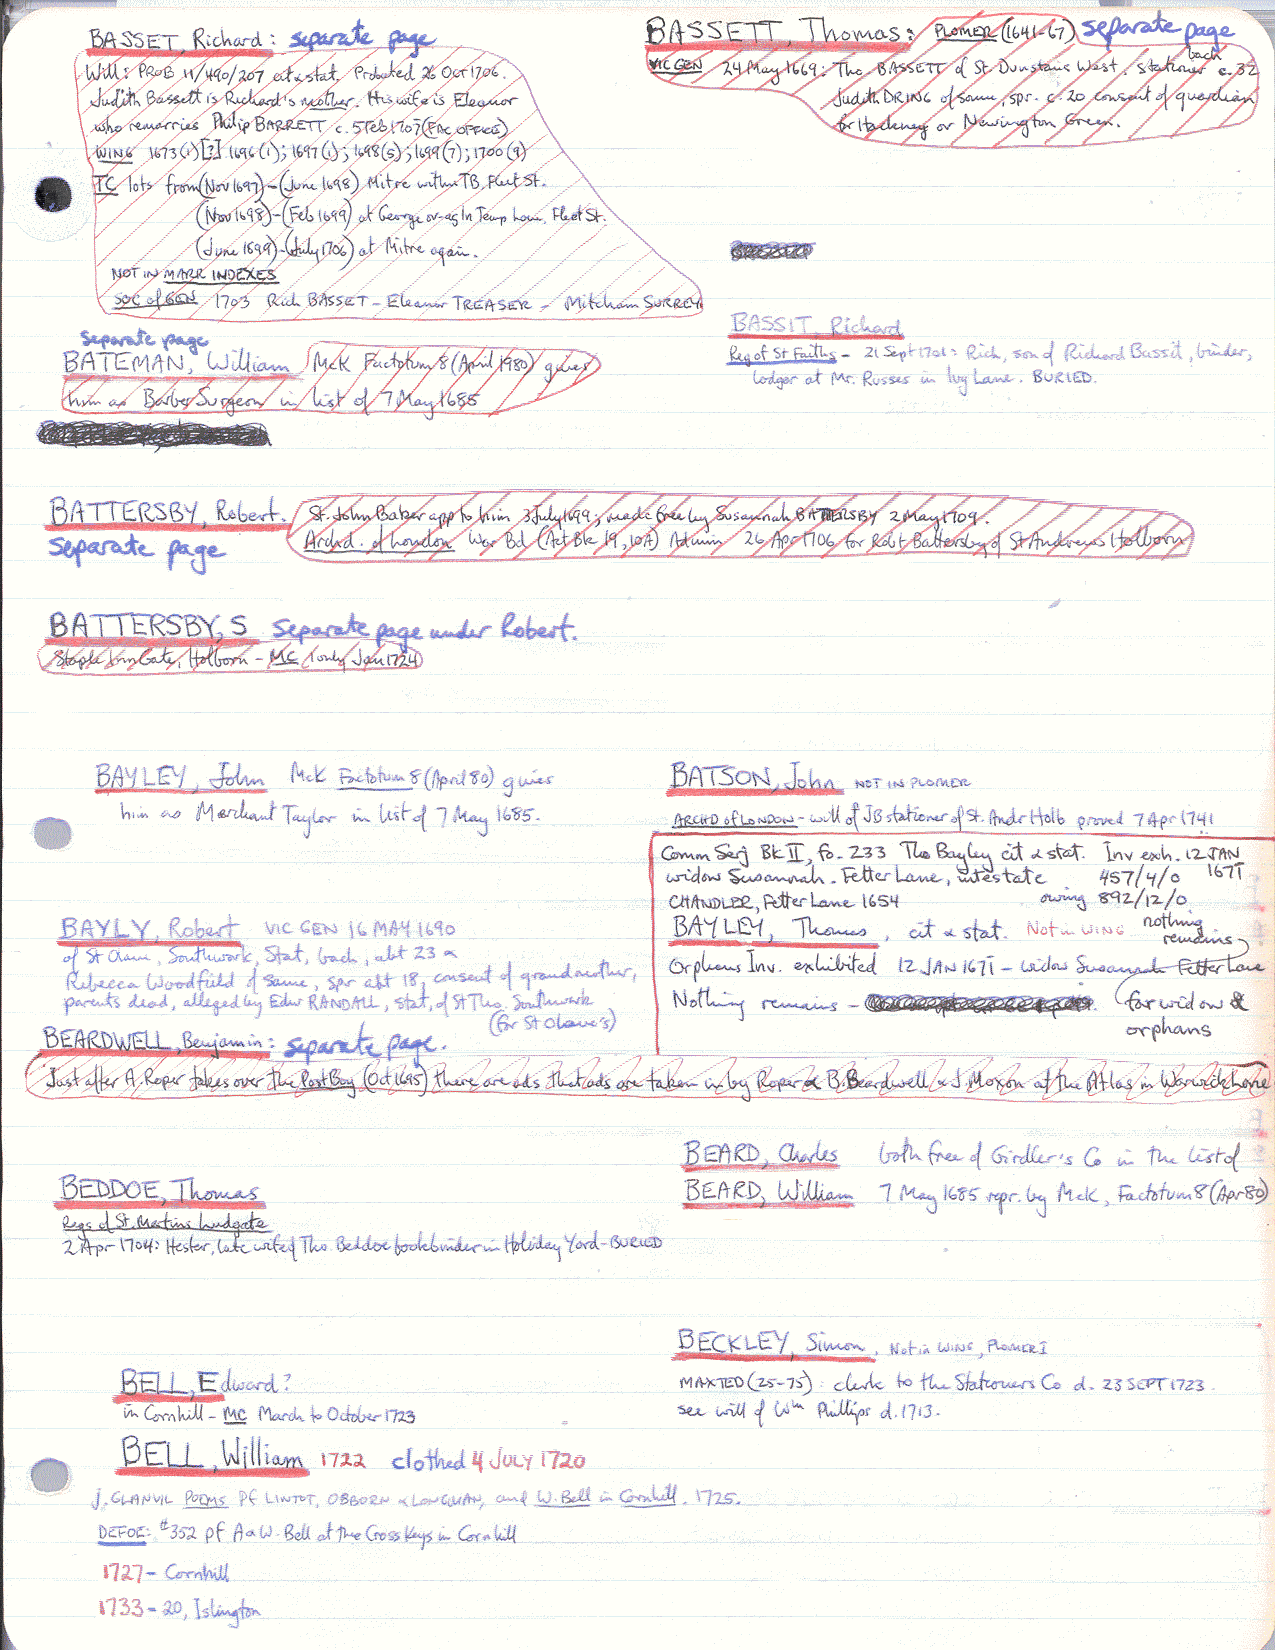 BASSET, Richard: separate page
Will: PROB 11/490/207 cit & stat. Probated 26 Oct 1706.
Judith Bassett is Richard's mother. His wife is Eleanor
who remarries Philip BARRETT c. 5 Feb 1707 (FAC OFFICE)
WING 1673(1)[?] 1696(1); 1697(1); 1698(5); 1699(7); 1700(9)
TC lots from (Nov 1697)-(June 1698) Mitre within TB, Fleet St.
(Nov 1698)-(Feb 1699) at George or-ag In Temp Lane, Fleet St.
(June 1699)-(July 1706) at Mitre again.
NOT IN MARR INDEXES
SOC of GEN 1703 Rich BASSET - Eleanor TREASER - Mitcham SURREY
BASSETT, Thomas: PLOMER (1641-67) separate page
VIC GEN 24 May 1669: Tho BASSETT of St. Dunstans West, stationer bach c. 32
Judith DRING of same, spr. c. 20 consent of guardian
for Hackney or Newington Green.
BASSIT, Richard
Reg of St Faiths - 21 Sept 1701: Rich, son of Richard Bassit, binder,
lodger at Mr. Russes in Ivy Lane. BURIED.
separate page
BATEMAN, William McK Factotum 8 (April 1980) gives
him as Barber Surgeon in list of 7 May 1685
BATTERSBY, Robert. St. John Baker app to him 3 July 1699; made free by Susannah BATTERSBY 2 May 1709.
separate page Archd. of London War Bd (Act Bk 19, 10A) Admin 26 Apr 1706 for Robt Battersby of St Andrews Holborn
BATTERSBY, S separate page under Robert.
Staple Inn Gate, Holborn - MC 1 only Jan 1724
BAYLEY, John McK Factotum 8 (April 80) gives
him as Merchant Taylor in list of 7 May 1685.
BATSON, John NOT IN PLOMER
ARCHD of LONDON - will of JB stationer of St. Andr Holb proved 7 Apr 1741
Comm Serj Bk II, fo. 233 Tho Bayley cit & stat. Inv exh. 12 JAN 1671
widow Susannah. Fetter Lane, intestate 457/4/0
CHANDLER, Fetter Lane 1654 owing 892/12/0
BAYLEY, Thomas, cit & stat. Not in WING nothing remains
Orphans Inv. exhibited 12 JAN 1671 - widow Susannah Fetter Lane
Nothing remains - (for widow & orphans
BAYLY, Robert VIC GEN 16 MAY 1690
of St Olave, Southwork, Stat, bach, abt 23 &
Rebecca Woodfield of same, spr abt 18, consent of grandmother,
parents dead, alleged by Edw RANDALL, stat, of St Tho. Southwork
(for St Olave's)
BEARDWELL, Benjamin: separate page.
Just after A. Roper takes over the Post Boy (Oct 1695) there are ads that ads are taken in by Roper & B. Beardwell & J. Moxon at the Atlas in Warwick Lane
BEARD, Charles both free of Girdler's Co in the list of
BEARD, William 7 May 1685 repr. by McK, Factotum 8 (Apr 80)
BEDDOE, Thomas
Regs of St. Martins Ludgate
2 Apr 1704: Hester, late wife of Tho Beddoe bookbinder in Holiday Yard - BURIED
BECKLEY, Simon, Not in WING, PLOMER I
MAXTED (25-75): clerk to the Stationers Co d. 23 SEPT 1723.
see will of Wm Phillips d. 1713.
BELL, Edward?
in Cornhill - MC March to October 1723
BELL, William 1722 clothed 4 JULY 1720
J. GLANVIL POEMS pf LINTOT, OSBORN & LONGMAN, and W. Bell in Cornhill. 1725.
DEFOE: #352 pf A & W. Bell at the Cross Keys in Cornhill
1727 - Cornhill
1733 - 20, Islington